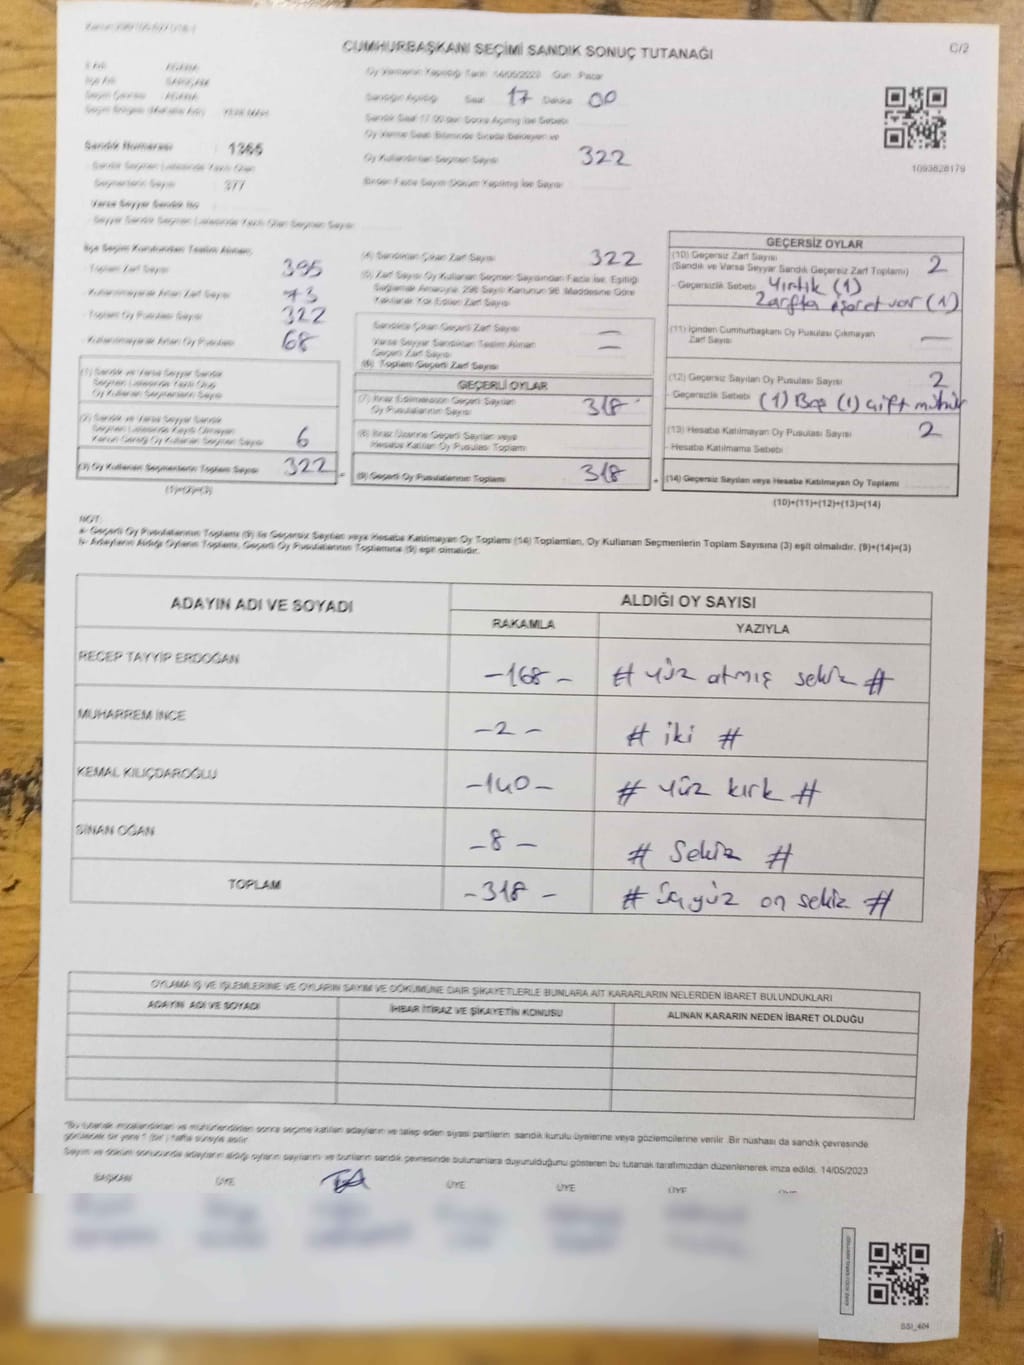 CUMHURBAŞKANI SEÇİMİ SANDIK SONUÇ TUTANAĞI
C/2
İl Adı : ADANA
İlçe Adı : SARIÇAM
Seçim Çevresi : ADANA
Oy Vermenin Yapıldığı Tarih 14/05/2023 Gün Pazar
Sandığın Açıldığı Saat 17 Dakika 00
Sandık Saat 17.00'den Sonra Açılmış İse Sebebi
Oy Verme Saati Bitiminde Sırada Bekleyen ve
Oy Kullandırılan Seçmen Sayısı 322
Birden Fazla Sayım Döküm Yapılmış İse Sayısı
1093828179
Sandık Numarası : 1366
Sandık Seçmen Listesinde Kayıtlı Olan
Seçmenlerin Sayısı : 377
Varsa Seyyar Sandık No
Seyyar Sandık Seçmen Listesinde Kayıtlı Olan Seçmen Sayısı
İlçe Seçim Kurulundan Teslim Alınan;
- Toplam Zarf Sayısı 395
- Kullanılmayarak Artan Zarf Sayısı 73
- Toplam Oy Pusulası Sayısı 322
- Kullanılmayarak Artan Oy Pusulası 68
(1) Sandık ve Varsa Seyyar Sandık
Seçmen Listesinde Kayıtlı Olup
Oy Kullanan Seçmenlerin Sayısı
(2) Sandık ve Varsa Seyyar Sandık
Seçmen Listesinde Kayıtlı Olmayan
Kanun Gereği Oy Kullanan Seçmen Sayısı 6
(3) Oy Kullanan Seçmenlerin Toplam Sayısı 322
(1)+(2)=(3)
(4) Sandıktan Çıkan Zarf Sayısı 322
(5) Zarf Sayısı Oy Kullanan Seçmen Sayısından Fazla İse, Eşitliği
Sağlamak Amacıyla, 298 Sayılı Kanunun 98. Maddesine Göre
Yakılarak Yok Edilen Zarf Sayısı
Sandıkta Çıkan Geçerli Zarf Sayısı —
Varsa Seyyar Sandıktan Teslim Alınan
Geçerli Zarf Sayısı —
(6) Toplam Geçerli Zarf Sayısı
GEÇERLİ OYLAR
(7) İtiraz Edilmeksizin Geçerli Sayılan
Oy Pusulalarının Sayısı 318
(8) İtiraz Üzerine Geçerli Sayılan veya
Hesaba Katılan Oy Pusulası Toplamı
(9) Geçerli Oy Pusulalarının Toplamı 318
GEÇERSİZ OYLAR
(10) Geçersiz Zarf Sayısı
(Sandık ve Varsa Seyyar Sandık Geçersiz Zarf Toplamı) 2
- Geçersizlik Sebebi Yırtık (1)
Zarfta işaret var (1)
(11) İçinden Cumhurbaşkanı Oy Pusulası Çıkmayan
Zarf Sayısı —
(12) Geçersiz Sayılan Oy Pusulası Sayısı 2
- Geçersizlik Sebebi (1) Boş (1) çift mühür
(13) Hesaba Katılmayan Oy Pusulası Sayısı 2
- Hesaba Katılmama Sebebi
(14) Geçersiz Sayılan veya Hesaba Katılmayan Oy Toplamı
(10)+(11)+(12)+(13)=(14)
NOT:
a- Geçerli Oy Pusulalarının Toplamı (9) ile Geçersiz Sayılan veya Hesaba Katılmayan Oy Toplamı (14) Toplamları, Oy Kullanan Seçmenlerin Toplam Sayısına (3) eşit olmalıdır. (9)+(14)=(3)
b- Adayların Aldığı Oyların Toplamı, Geçerli Oy Pusulalarının Toplamına (9) eşit olmalıdır.
ADAYIN ADI VE SOYADI
ALDIĞI OY SAYISI
RAKAMLA YAZIYLA
RECEP TAYYİP ERDOĞAN -168- # yüz atmış sekiz #
MUHARREM İNCE -2- # iki #
KEMAL KILIÇDAROĞLU -140- # yüz kırk #
SİNAN OĞAN -8- # Sekiz #
TOPLAM -318- # üçyüz on sekiz #
OYLAMA İŞ VE İŞLEMLERİNE VE OYLARIN SAYIM VE DÖKÜMÜNE DAİR ŞİKAYETLERLE BUNLARA AİT KARARLARIN NELERDEN İBARET BULUNDUKLARI
ADAYIN ADI VE SOYADI İHBAR İTİRAZ VE ŞİKAYETİN KONUSU ALINAN KARARIN NEDEN İBARET OLDUĞU
"Bu tutanak imzalandıktan ve mühürlendikten sonra seçime katılan adayların ve talep eden siyasi partilerin sandık kurulu üyelerine veya gözlemcilerine verilir. Bir nüshası da sandık çevresinde
görülecek bir yere 1 (bir) hafta süreyle asılır.
Sayım ve döküm sonucunda adayların aldığı oyların sayılarını ve bunların sandık çevresinde bulunanlara duyurulduğunu gösteren bu tutanak tarafımızdan düzenlenerek imza edildi. 14/05/2023
BAŞKAN ÜYE ÜYE ÜYE ÜYE
SSI_404